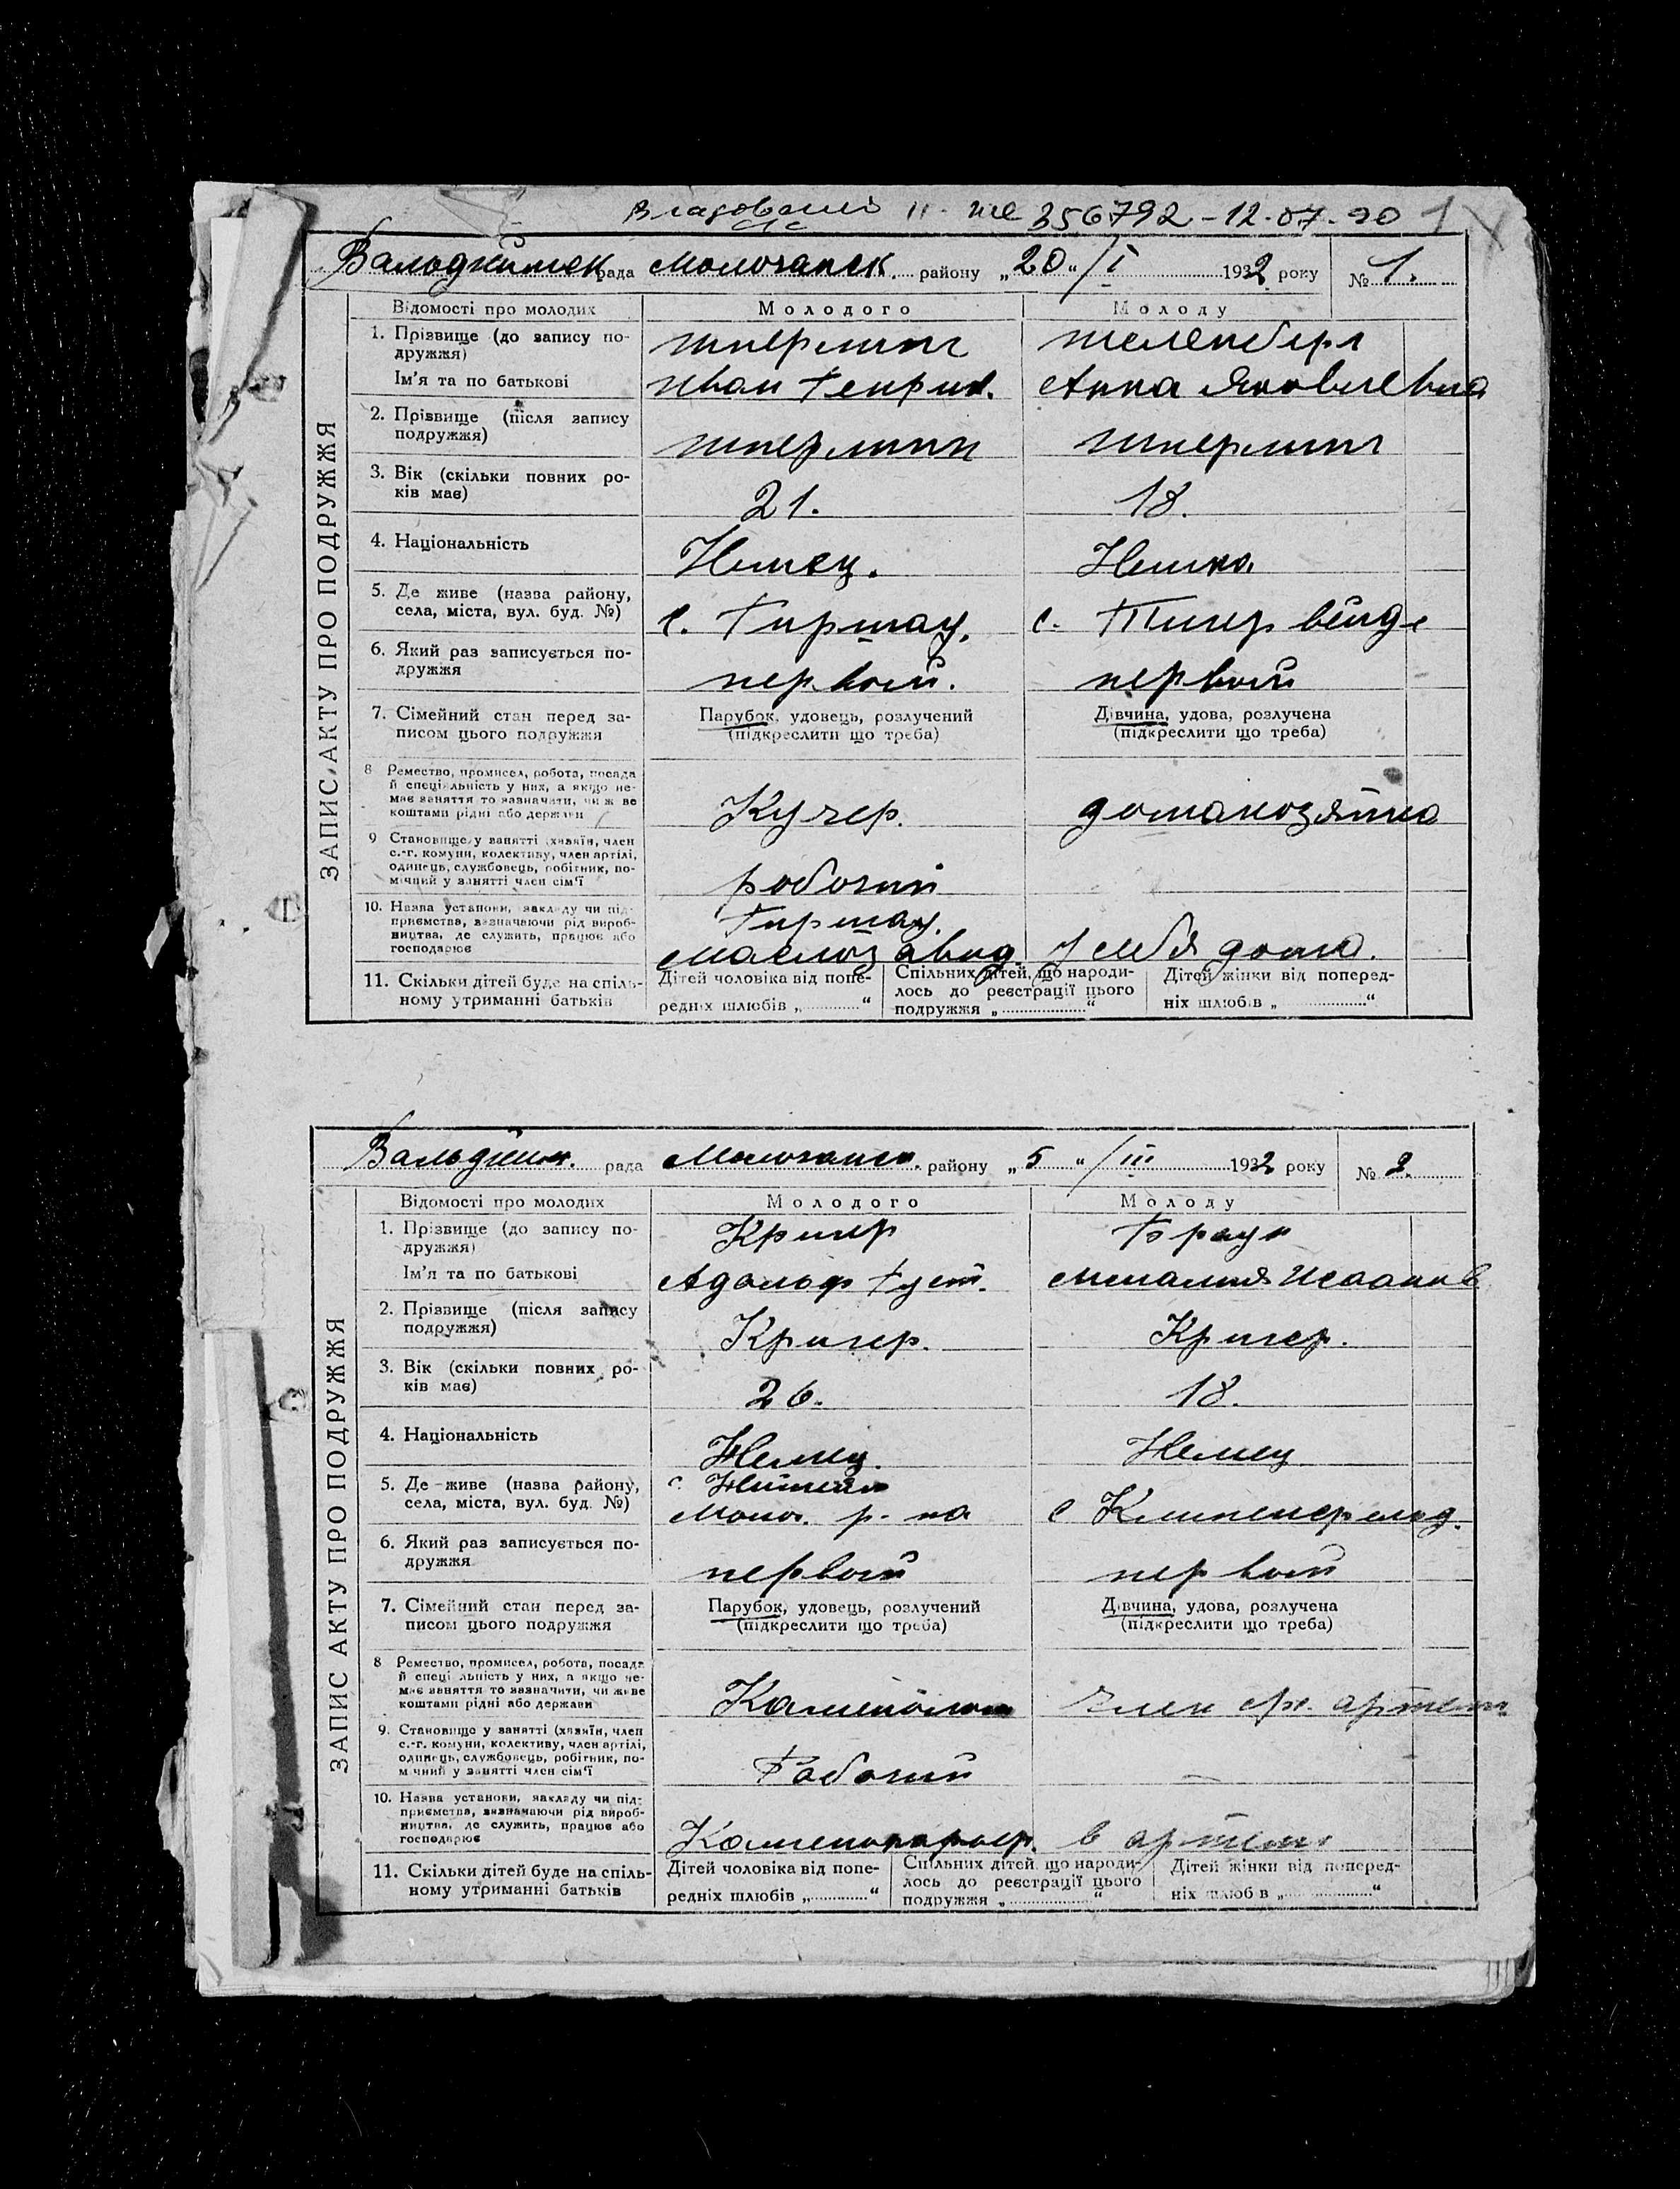 356792 - 12.07.90 1
Вальдгеймск рада Молочанск. району „20“ / I 1932 року № 1.
ЗАПИС АКТУ ПРО ПОДРУЖЖЯ
Відомості про молодих Молодого Молоду
1. Прізвище (до запису по- Шперлинг Шеленберг
дружжя)
Ім'я та по батькові Иван Генрих. Анна Яковлевна
2. Прізвище (після запису
подружжя) Шперлинг Шперлинг
3. Вік (скільки повних ро-
ків має) 21. 18.
4. Національність Немец. Немка
5. Де живе (назва району,
села, міста, вул. буд. №) с. Гиршау. с. Тигервейде
6. Який раз записується по-
дружжя первый. первый
7. Сімейний стан перед за- Парубок, удовець, розлучений Дівчина, удова, розлучена
писом цього подружжя (підкреслити що треба) (підкреслити що треба)
8 Ремество, промисел, робота, посада
й спеціяльність у них, а якщо не-
має заняття то зазначати, чи ж ве
коштами рідні або держави Кучер. домахозяйка
9 Становище у занятті (хазяїн, член
с.-г. комуни, колективу, член артілі,
одинець, службовець, робітник, по-
мічний у занятті член сім'ї рабочий
10. Назва установи, закладу чи під- Гиршау.
приємства, зазначаючи рід вироб-
ництва, де служить, працює або
господарює маслозавод у себя дома.
11. Скільки дітей буде на спіль- Дітей чоловіка від попе- Спільних дітей, що народи- Дітей жінки від поперед-
ному утриманні батьків редніх шлюбів „ “ лось до реєстрації цього ніх шлюбів „ “
подружжя „ “
Вальдгейм. рада Молочанск. району „5“ / III 1932 року № 2.
ЗАПИС АКТУ ПРО ПОДРУЖЖЯ
Відомості про молодих Молодого Молоду
1. Прізвище (до запису по- Кригер Браун
дружжя)
Ім'я та по батькові Адольф Густ. Исаак
2. Прізвище (після запису
подружжя) Кригер. Кригер.
3. Вік (скільки повних ро-
ків має) 26. 18.
4. Національність Немец. Немец
5. Де живе (назва району, с.
села, міста, вул. буд. №) Молоч. р-на с Клипенфельд.
6. Який раз записується по-
дружжя первый первый
7. Сімейний стан перед за- Парубок, удовець, розлучений Дівчина, удова, розлучена
писом цього подружжя (підкреслити що треба) (підкреслити що треба)
8 Ремество, промисел, робота, посада
й спеціяльність у них, а якщо не-
має заняття то зазначити, чи живе
коштами рідні або держави член артели
9. Становище у занятті (хазяїн, член
с.-г. комуни, колективу, член артілі,
одинець, службовець, робітник, по-
мічний у занятті член сім'ї Рабочий
10. Назва установи, закладу чи під-
приємства, зазначаючи рід вироб-
ництва, де служить, працює або
господарює Каменокарьер. в артели
11. Скільки дітей буде на спіль- Дітей чоловіка від попе- Спільних дітей, що народи- Дітей жінки від поперед-
ному утриманні батьків редніх шлюбів „ “ лось до реєстрації цього ніх шлюбів „ “
подружжя „ “